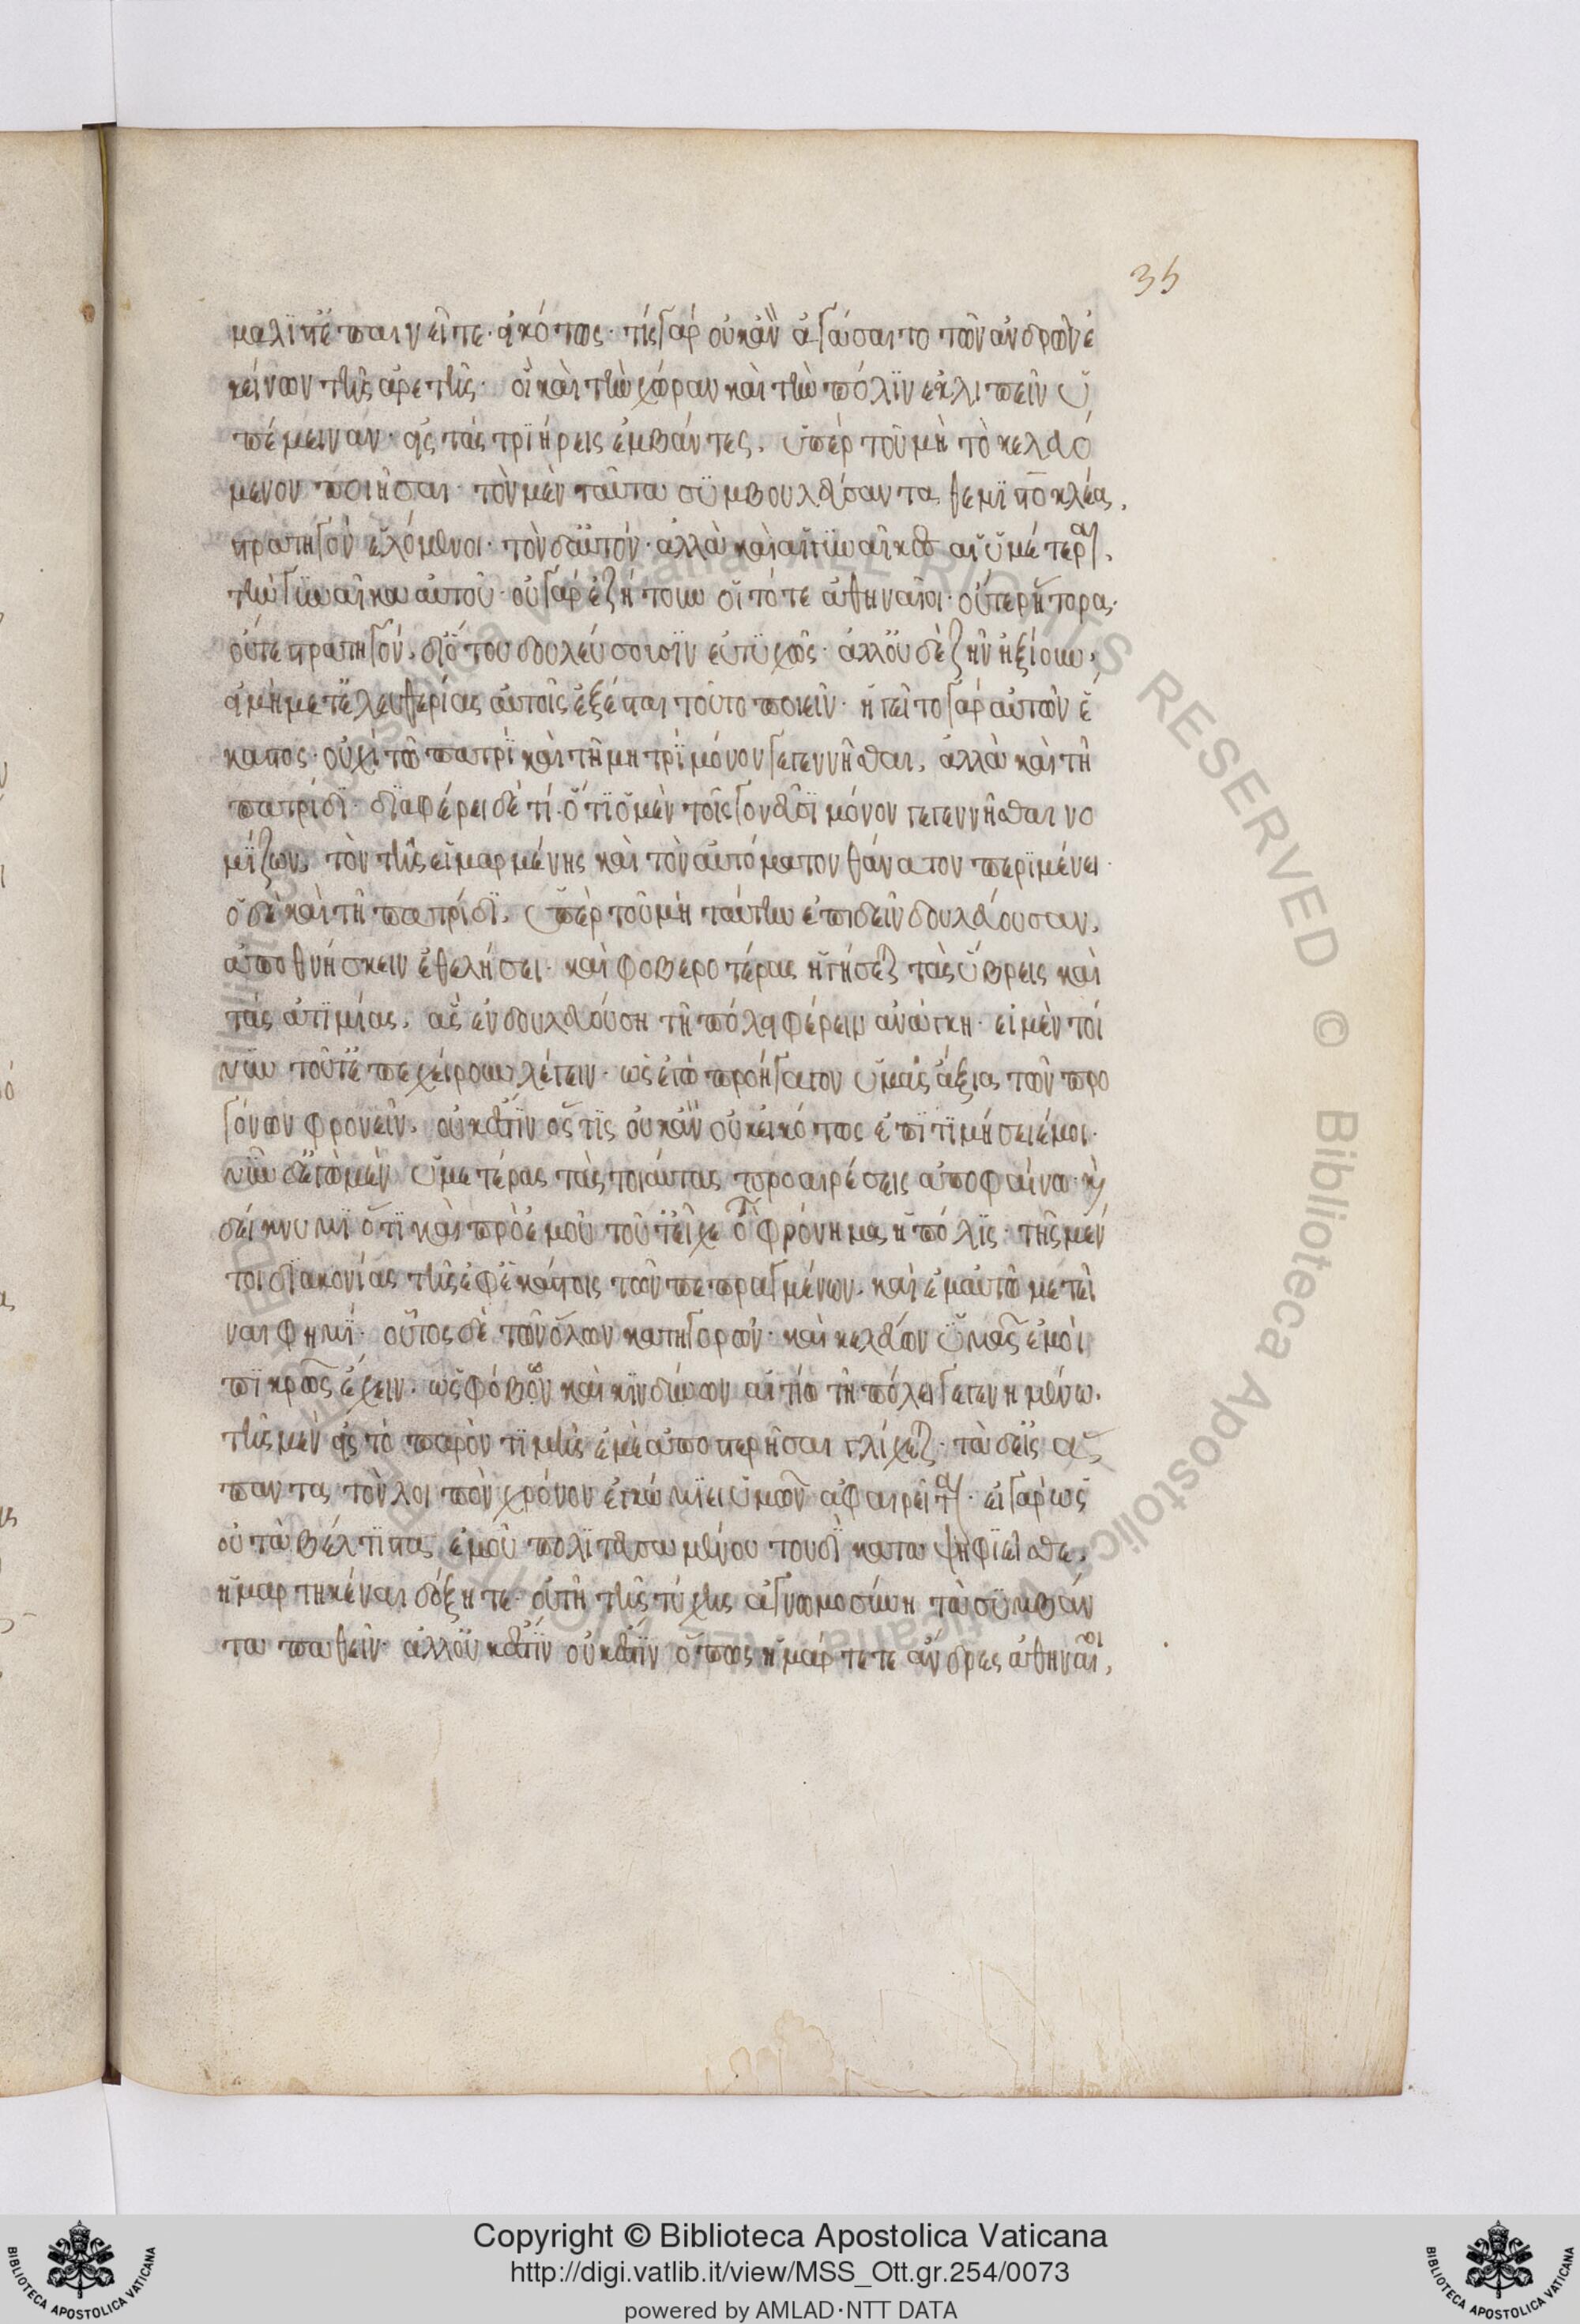 35
μάλιστ' ἐπαινεῖτε· εἰκότως· τίς γὰρ οὐκ ἂν ἀγάσαιτο τῶν ἀνδρῶν ἐ
κείνων τῆς ἀρετῆς· οἳ καὶ τὴν χώραν καὶ τὴν πόλιν ἐκλιπεῖν ὑ
πέμειναν· εἰς τὰς τριήρεις ἐμβάντες, ὑπὲρ τοῦ μὴ τὸ κελευό
μενον ποιῆσαι· τὸν μὲν ταῦτα συμβουλεύσαντα θεμιστοκλέα,
στρατηγὸν ἑλόμενοι· τὸν δ' αὐτόν· ἀλλὰ καὶ αἱ γυναῖκες αἱ ὑμέτεραι,
τὴν γυναῖκα αὐτοῦ· οὐ γὰρ ἐζήτουν οἱ τότε ἀθηναῖοι· οὔτε ῥήτορα·
οὔτε στρατηγόν, δι' ὅτου δουλεύσουσιν εὐτυχῶς· ἀλλ' οὐδὲ ζῆν ἠξίουν,
εἰ μὴ μετ' ἐλευθερίας αὐτοῖς ἐξέσται τοῦτο ποιεῖν· ἡγεῖτο γὰρ αὐτῶν ἕ
καστος· οὐχὶ τῶ πατρὶ καὶ τῆ μητρὶ μόνον γεγεννῆσθαι, ἀλλὰ καὶ τῆ
πατρίδι· διαφέρει δὲ τί· ὅτι ὁ μὲν τοῖς γονεῦσι μόνον γεγεννῆσθαι νο
μίζων, τὸν τῆς εἱμαρμένης καὶ τὸν αὐτόματον θάνατον περιμένει·
ὁ δὲ καὶ τῆ πατρίδι, ὑπὲρ τοῦ μὴ ταύτην ἐπιδεῖν δουλεύουσαν,
ἀποθνήσκειν ἐθελήσει· καὶ φοβεροτέρας ἡγήσεται τὰς ὕβρεις καὶ
τὰς ἀτιμίας, ἃς ἐν δουλευούση τῆ πόλει φέρειν ἀνάγκη· εἰ μὲν τοί
νυν τοῦτ' ἐπεχείρουν λέγειν· ὡς ἐγὼ προήγαγον ὑμᾶς ἄξια τῶν προ
γόνων φρονεῖν, οὐκ ἔστιν ὅστις οὐκ ἂν οὐκ εἰκότως ἐπιτιμήσειέ μοι·
νῦν δ' ἐγὼ μὲν ὑμετέρας τὰς τοιαύτας προαιρέσεις ἀποφαίνω· καὶ
δείκνυμι ὅτι καὶ πρὸ ἐμοῦ τοῦτ' εἶχε τὸ φρόνημα ἡ πόλις· τῆς μέν
τοι διακονίας τῆς ἐφ' ἑκάστοις τῶν πεπραγμένων, καὶ ἐμαυτῶ μετεῖ
ναι φημί· οὗτος δὲ τῶν ὅλων κατηγορῶν· καὶ κελεύων ὑμᾶς ἐμοὶ
πικρῶς ἔχειν, ὡς φόβων καὶ κινδύνων αἰτίω τῆ πόλει γεγενημένω,
τῆς μὲν εἰς τὸ παρὸν τιμῆς ἐμὲ ἀποστερῆσαι γλίχεται· τὰ δ' εἰς ἅ
παντα τὸν λοιπὸν χρόνον ἐγκώμι' ὑμῶν ἀφαιρεῖται· εἰ γὰρ ὡς
οὐ τὰ βέλτιστα ἐμοῦ πολιτευσαμένου τουδὶ καταψηφιεῖσθε,
ἡμαρτηκέναι δόξητε· οὐ τῆ τῆς τύχης ἀγνωμοσύνη τὰ συμβάν
τα παθεῖν· ἀλλ' οὐκ ἔστιν οὐκ ἔστιν ὅπως ἡμάρτετε ἄνδρες ἀθηναῖοι,
Copyright © Biblioteca Apostolica Vaticana
http://digi.vatlib.it/view/MSS_Ott.gr.254/0073
powered by AMLAD·NTT DATA